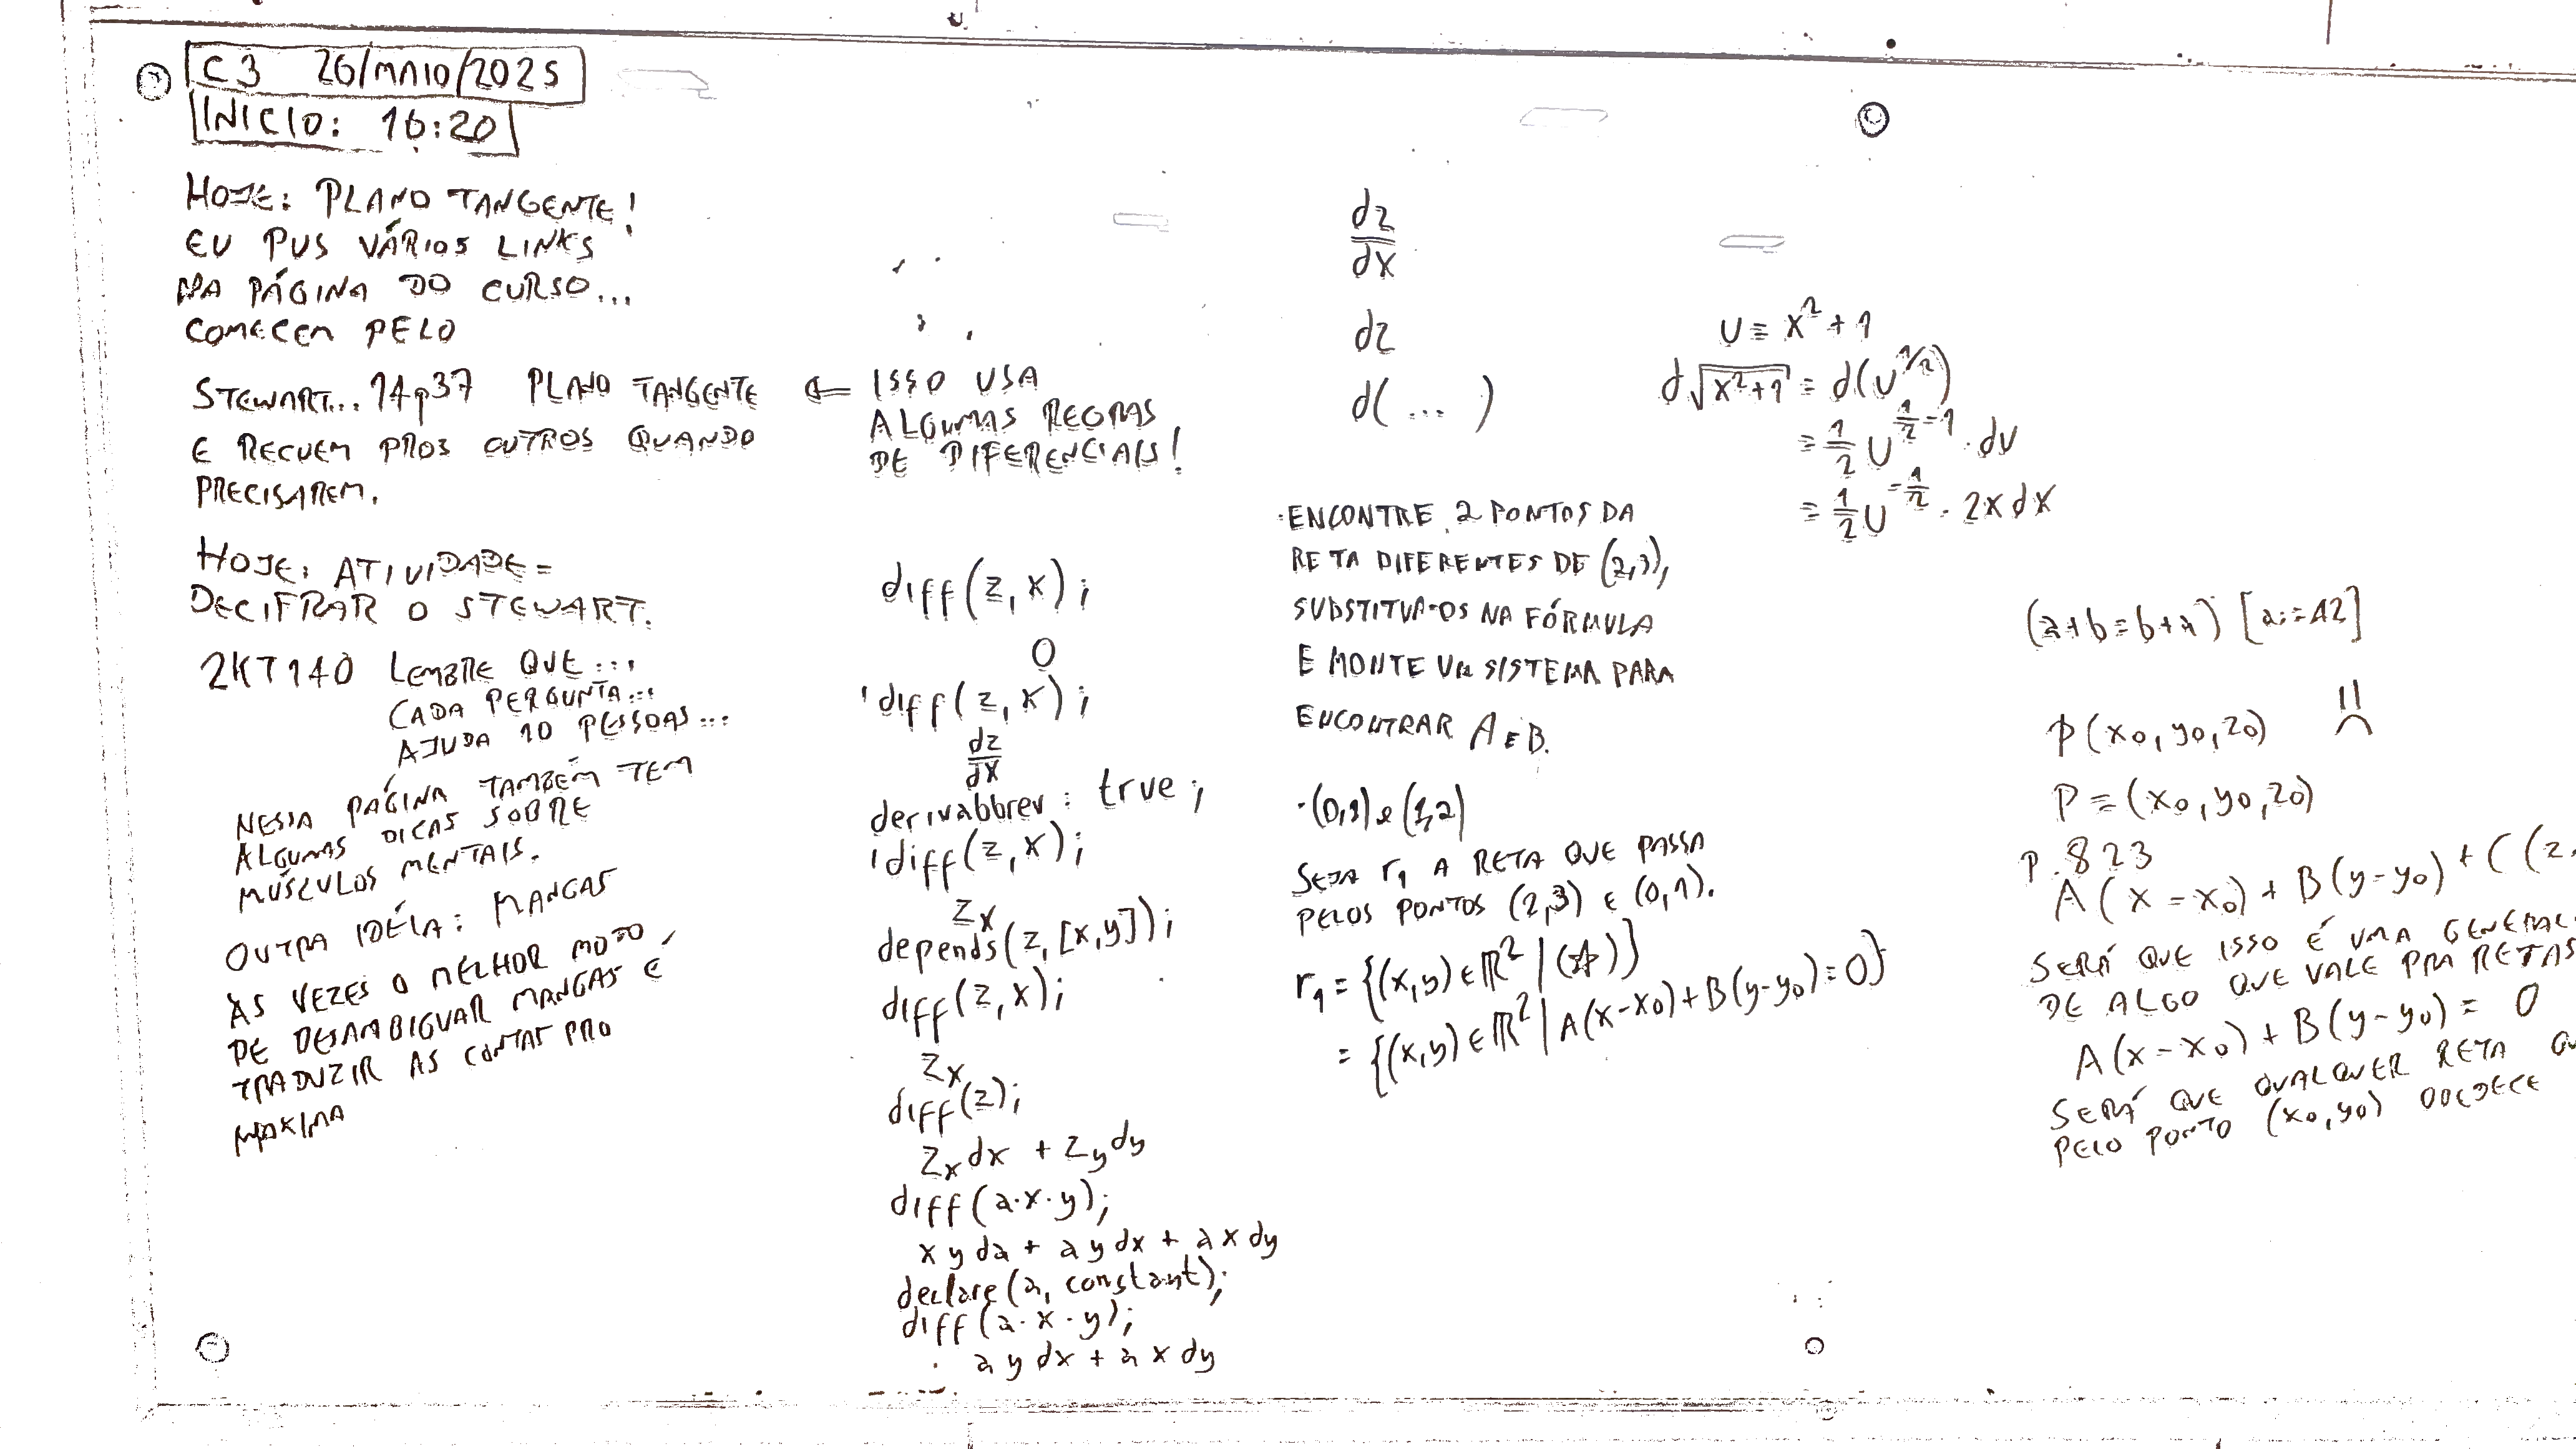 C3 26/MAIO/2025
INICIO: 16:20
HOJE: PLANO TANGENTE!
EU PUS VÁRIOS LINKS
NA PÁGINA DO CURSO...
COMECEM PELO
STEWART... 14p37 PLANO TANGENTE ⇐ ISSO USA
ALGUMAS REGRAS
DE DIFERENCIAIS!
E RECUEM PROS OUTROS QUANDO
PRECISAREM.
HOJE: ATIVIDADE =
DECIFRAR O STEWART.
2KT140 LEMBRE QUE...
CADA PERGUNTA...
AJUDA 10 PESSOAS...
NESSA PÁGINA TAMBÉM TEM
ALGUMAS DICAS SOBRE
MÚSCULOS MENTAIS.
OUTRA IDÉIA: MANGAS
ÀS VEZES O MELHOR MODO
DE DESAMBIGUAR MANGAS É
TRADUZIR AS CONTAS PRO
MAXIMA
diff(z,x);
0
'diff(z,x);
dz
dx
derivabbrev: true;
'diff(z,x);
z_x
depends(z,[x,y]);
diff(z,x);
z_x
diff(z);
z_x dx + z_y dy
diff(a·x·y);
x y da + a y dx + a x dy
declare(a, constant);
diff(a·x·y);
a y dx + a x dy
dz
dx
dz
d(...)
·ENCONTRE 2 PONTOS DA
RETA DIFERENTES DE (2,3),
SUBSTITUA-OS NA FÓRMULA
E MONTE UM SISTEMA PARA
ENCONTRAR A E B.
·(0,1) e (1,2)
SEJA r₁ A RETA QUE PASSA
PELOS PONTOS (2,3) E (0,1).
r₁ = {(x,y)∈ℝ² | (☆)}
= {(x,y)∈ℝ² | A(x-x₀)+B(y-y₀)=0}
u = x² + 1
d√(x²+1) = d(u^(1/2))
= 1/2 u^(1/2 - 1) · du
= 1/2 u^(-1/2) · 2x dx
(a+b=b+a) [a:=42]
P(x₀,y₀,z₀) :(
P=(x₀,y₀,z₀)
P.823
A(x-x₀) + B(y-y₀) + C(z
SERÁ QUE ISSO É UMA
DE ALGO QUE VALE PRA RETAS
A(x-x₀) + B(y-y₀) = 0
SERÁ QUE QUALQUER RETA
PELO PONTO (x₀,y₀) OBEDECE